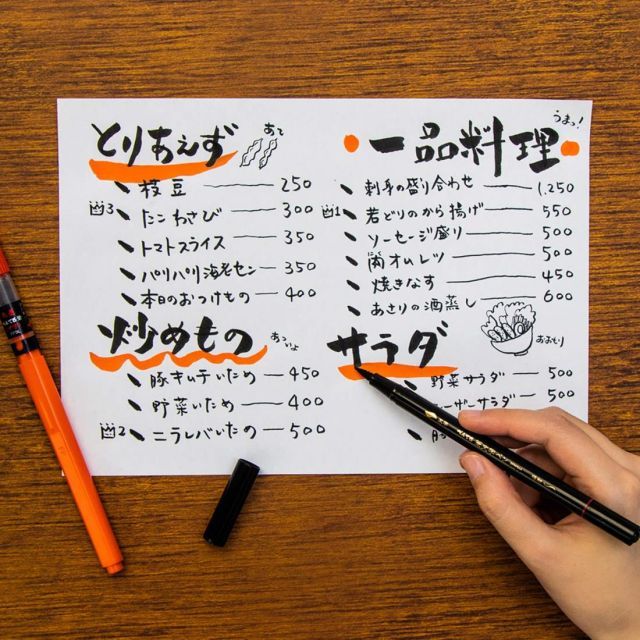 とりあえず
あて
枝豆 250
3 たこわさび 300
トマトスライス 350
パリパリ海老セン 350
本日のおつけもの 400
炒めもの
あつぃよ
豚キムチいため 450
野菜いため 400
2 ニラレバいため 500
うまっ!
一品料理
刺身の盛り合わせ 1,250
1 若どりのから揚げ 550
ソーセージ盛り 500
肉オムレツ 500
焼きなす 450
あさりの酒蒸し 600
サラダ
おおもり
野菜サラダ 500
ーザーサラダ 500